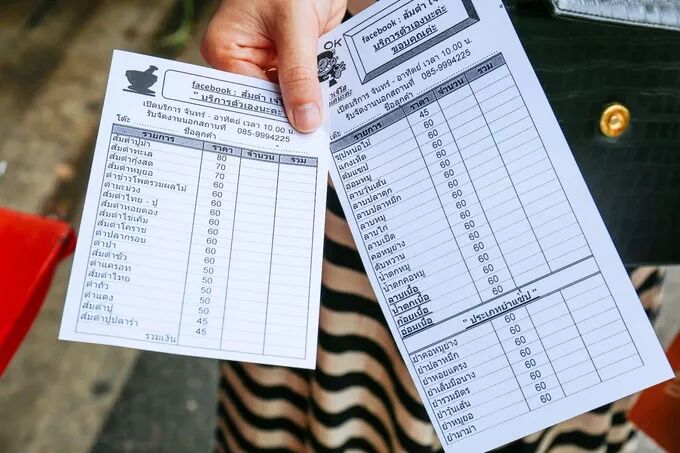 facebook : ส้มตำ
" บริการตัวเองนะคะ
เปิดบริการ จันทร์ - อาทิตย์ เวลา 10.00 น
รับจัดงานนอกสถานที่ 085-9994225
โต๊ะ ชื่อลูกค้า
รายการ ราคา จำนวน รวม
ส้มตำปูม้า 80
ส้มตำทะเล 70
ส้มตำกุ้งสด 70
ส้มตำหมูยอ 60
ตำข้าวโพดรวมผลไม้ 60
ตำมะม่วง 60
ส้มตำไทย - ปู 60
ส้มตำหอยดอง 60
ส้มตำไข่เค็ม 60
ส้มตำโคราช 60
ตำปลากรอบ 60
ตำป่า 60
ส้มตำซั่ว 50
ตำแครอท 50
ส้มตำไทย 50
ตำถั่ว 50
ตำแตง 45
ส้มตำปูปลาร้า 45
รวมเงิน
OK
facebook : ส้มตำ
บริการตัวเองนะคะ
ขอบคุณค่ะ
เปิดบริการ จันทร์ - อาทิตย์ เวลา 10.00 น.
รับจัดงานนอกสถานที่ 085-9994225
โต๊ะ ชื่อลูกค้า
รายการ ราคา จำนวน รวม
ซุปหน่อไม้ 45
แกงเห็ด 60
ต้มแซ่บ 60
อ่อมหมู 60
ลาบวุ้นเส้น 60
ลาบปลาดุก 60
ลาบปลาหมึก 60
ลาบหมู 60
ลาบไก่ 60
ลาบเป็ด 60
คอหมูย่าง 60
ตับหวาน 60
น้ำตกหมู 60
น้ำตกคอหมู 60
ลาบเนื้อ 60
น้ำตกเนื้อ 60
ก้อยเนื้อ 60
อ่อมเนื้อ 60
" ประเภทยำแซ่ป "
ยำคอหมูย่าง 60
ยำปลาหมึก 60
ยำหอยแครง 60
ยำเล็บมือนาง 60
ยำรวมมิตร 60
ยำวุ้นเส้น 60
ยำหมูยอ 60
ยำมาม่า 60